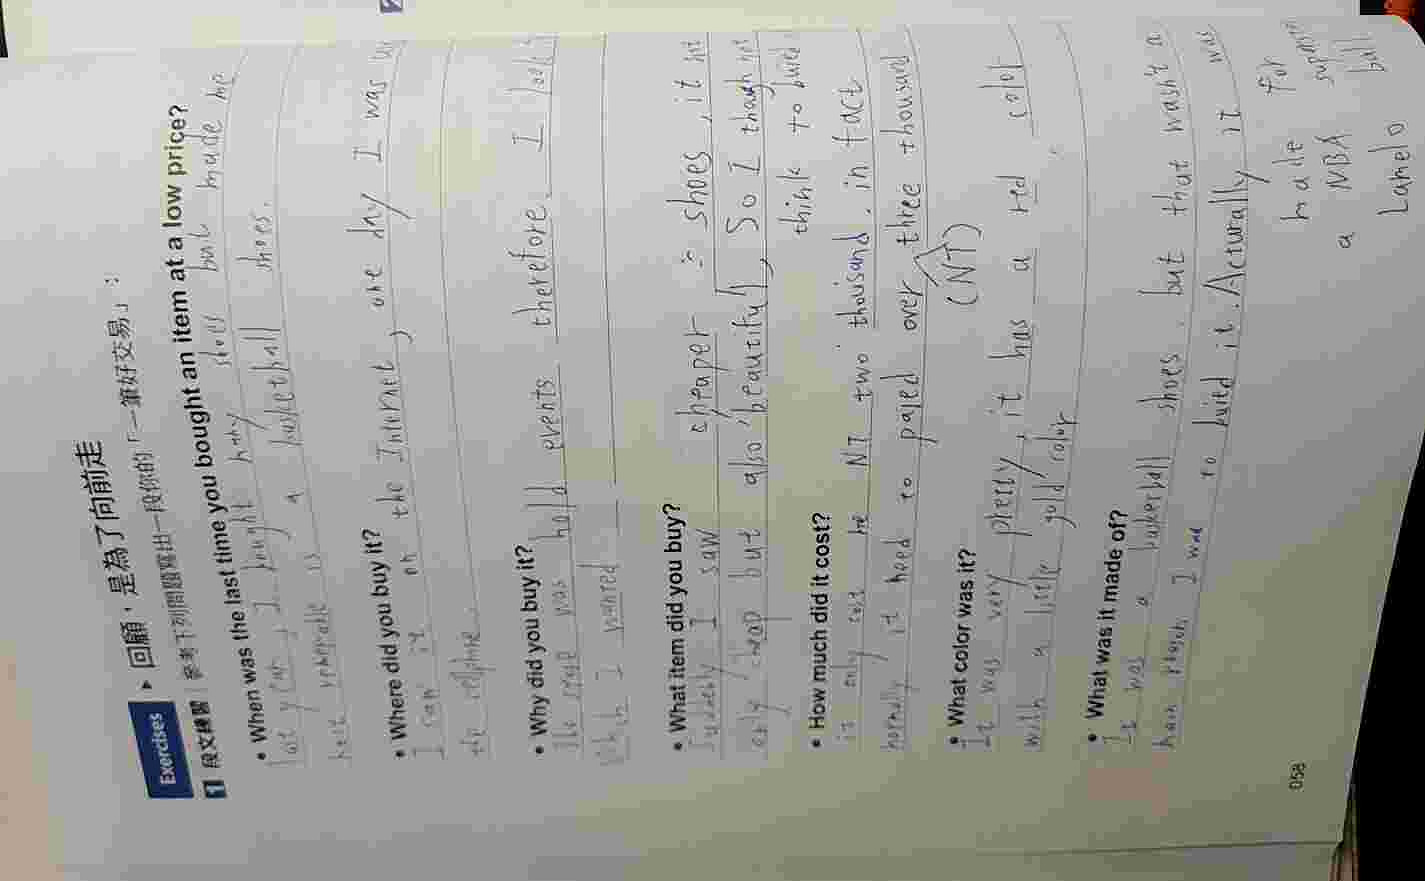 Exercises ▸ 回顧，是為了向前走
1 段文練習｜參考下列問題寫出一段你的「一筆好交易」：
• When was the last time you bought an item at a low price?
Last year, I bought many shoes but made me
most is a basketball shoes.
• Where did you buy it?
I saw it on the Internet, one day I was
the cellphone.
• Why did you buy it?
The was hold events therefore, I
which I wanted
• What item did you buy?
Suddenly I saw cheaper shoes, it not
only cheap but also beautiful, So I though not
think to buied
• How much did it cost?
it only cost me NT two thousand, in fact
normally it need to pajed over three thousand
(NT)
• What color was it?
It was very pretty, it has a red color
with a little gold color
• What was it made of?
It was a basketball shoes, but that wasn't a
main reason I was to buied it. Acturally it was
made for
a NBA superstar
Lamelo ball
058